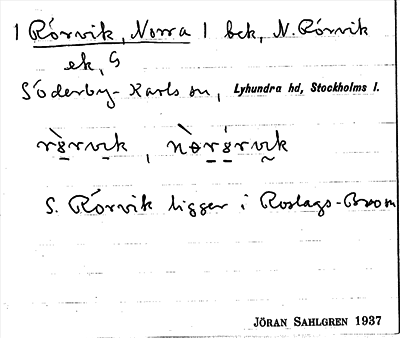 1 Rörvik, Norra 1 bek, N. Rörvik
ek, S
Söderby-Karls sn, Lyhundra hd, Stockholms l.
S. Rörvik ligger i Roslags-Bro sn
JÖRAN SAHLGREN 1937